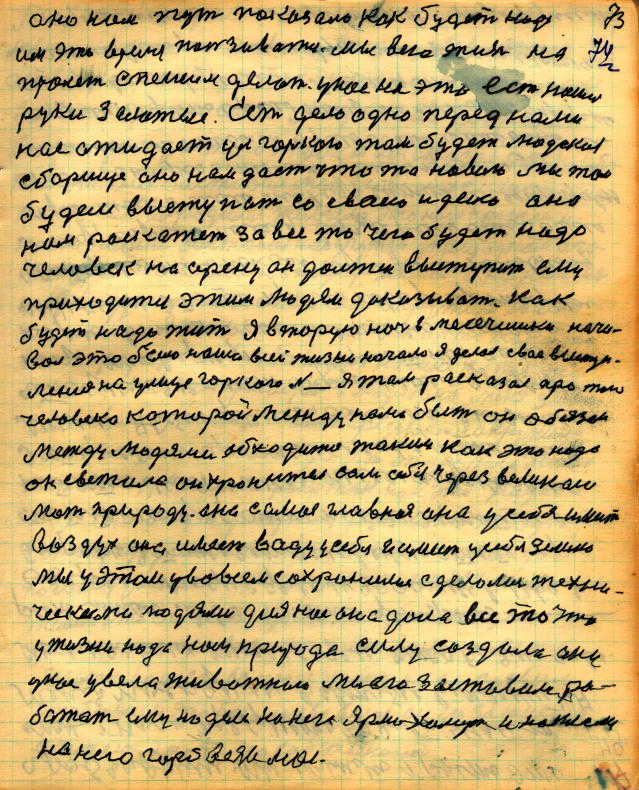 оно нам пут показало как будет надо 73
им это время пользывати. мы всго этих на 74
прохет спешим делат. унас на это ест наши
руки Залотые. Ест дело одно перед нами
нас ожидает ул горкого там будет людская
сборище оно нам даст что та новою мы там
будем выступат со своею идеею оно
нам раскажет За все то чего будет надо
человек на арену он должен выступит ему
приходитца этим людям доказыват. Как
будет надо жит Я вторую ноч в месечишки начи-
вал это было наша всей жизни начало Я делал свое выступ-
ления на улице горкого N_ Я там расказал про того
человека которой между нами быт он обязан
между людями обходитца таким как это надо
он светила он хронитца сам себя через великаю
мат природу. она самая главная она у себя имеит
воздух она имеит ваду у себя и имеит у себя Землю
мы у этом увовсем сохронили сделолис техни-
ческими людями для нас она дала все это что
у жизни нада нам природа силу создала она
унас увела животною мы его Заставили ра-
ботат ему надели на него Ярмо хамут и
на него горб